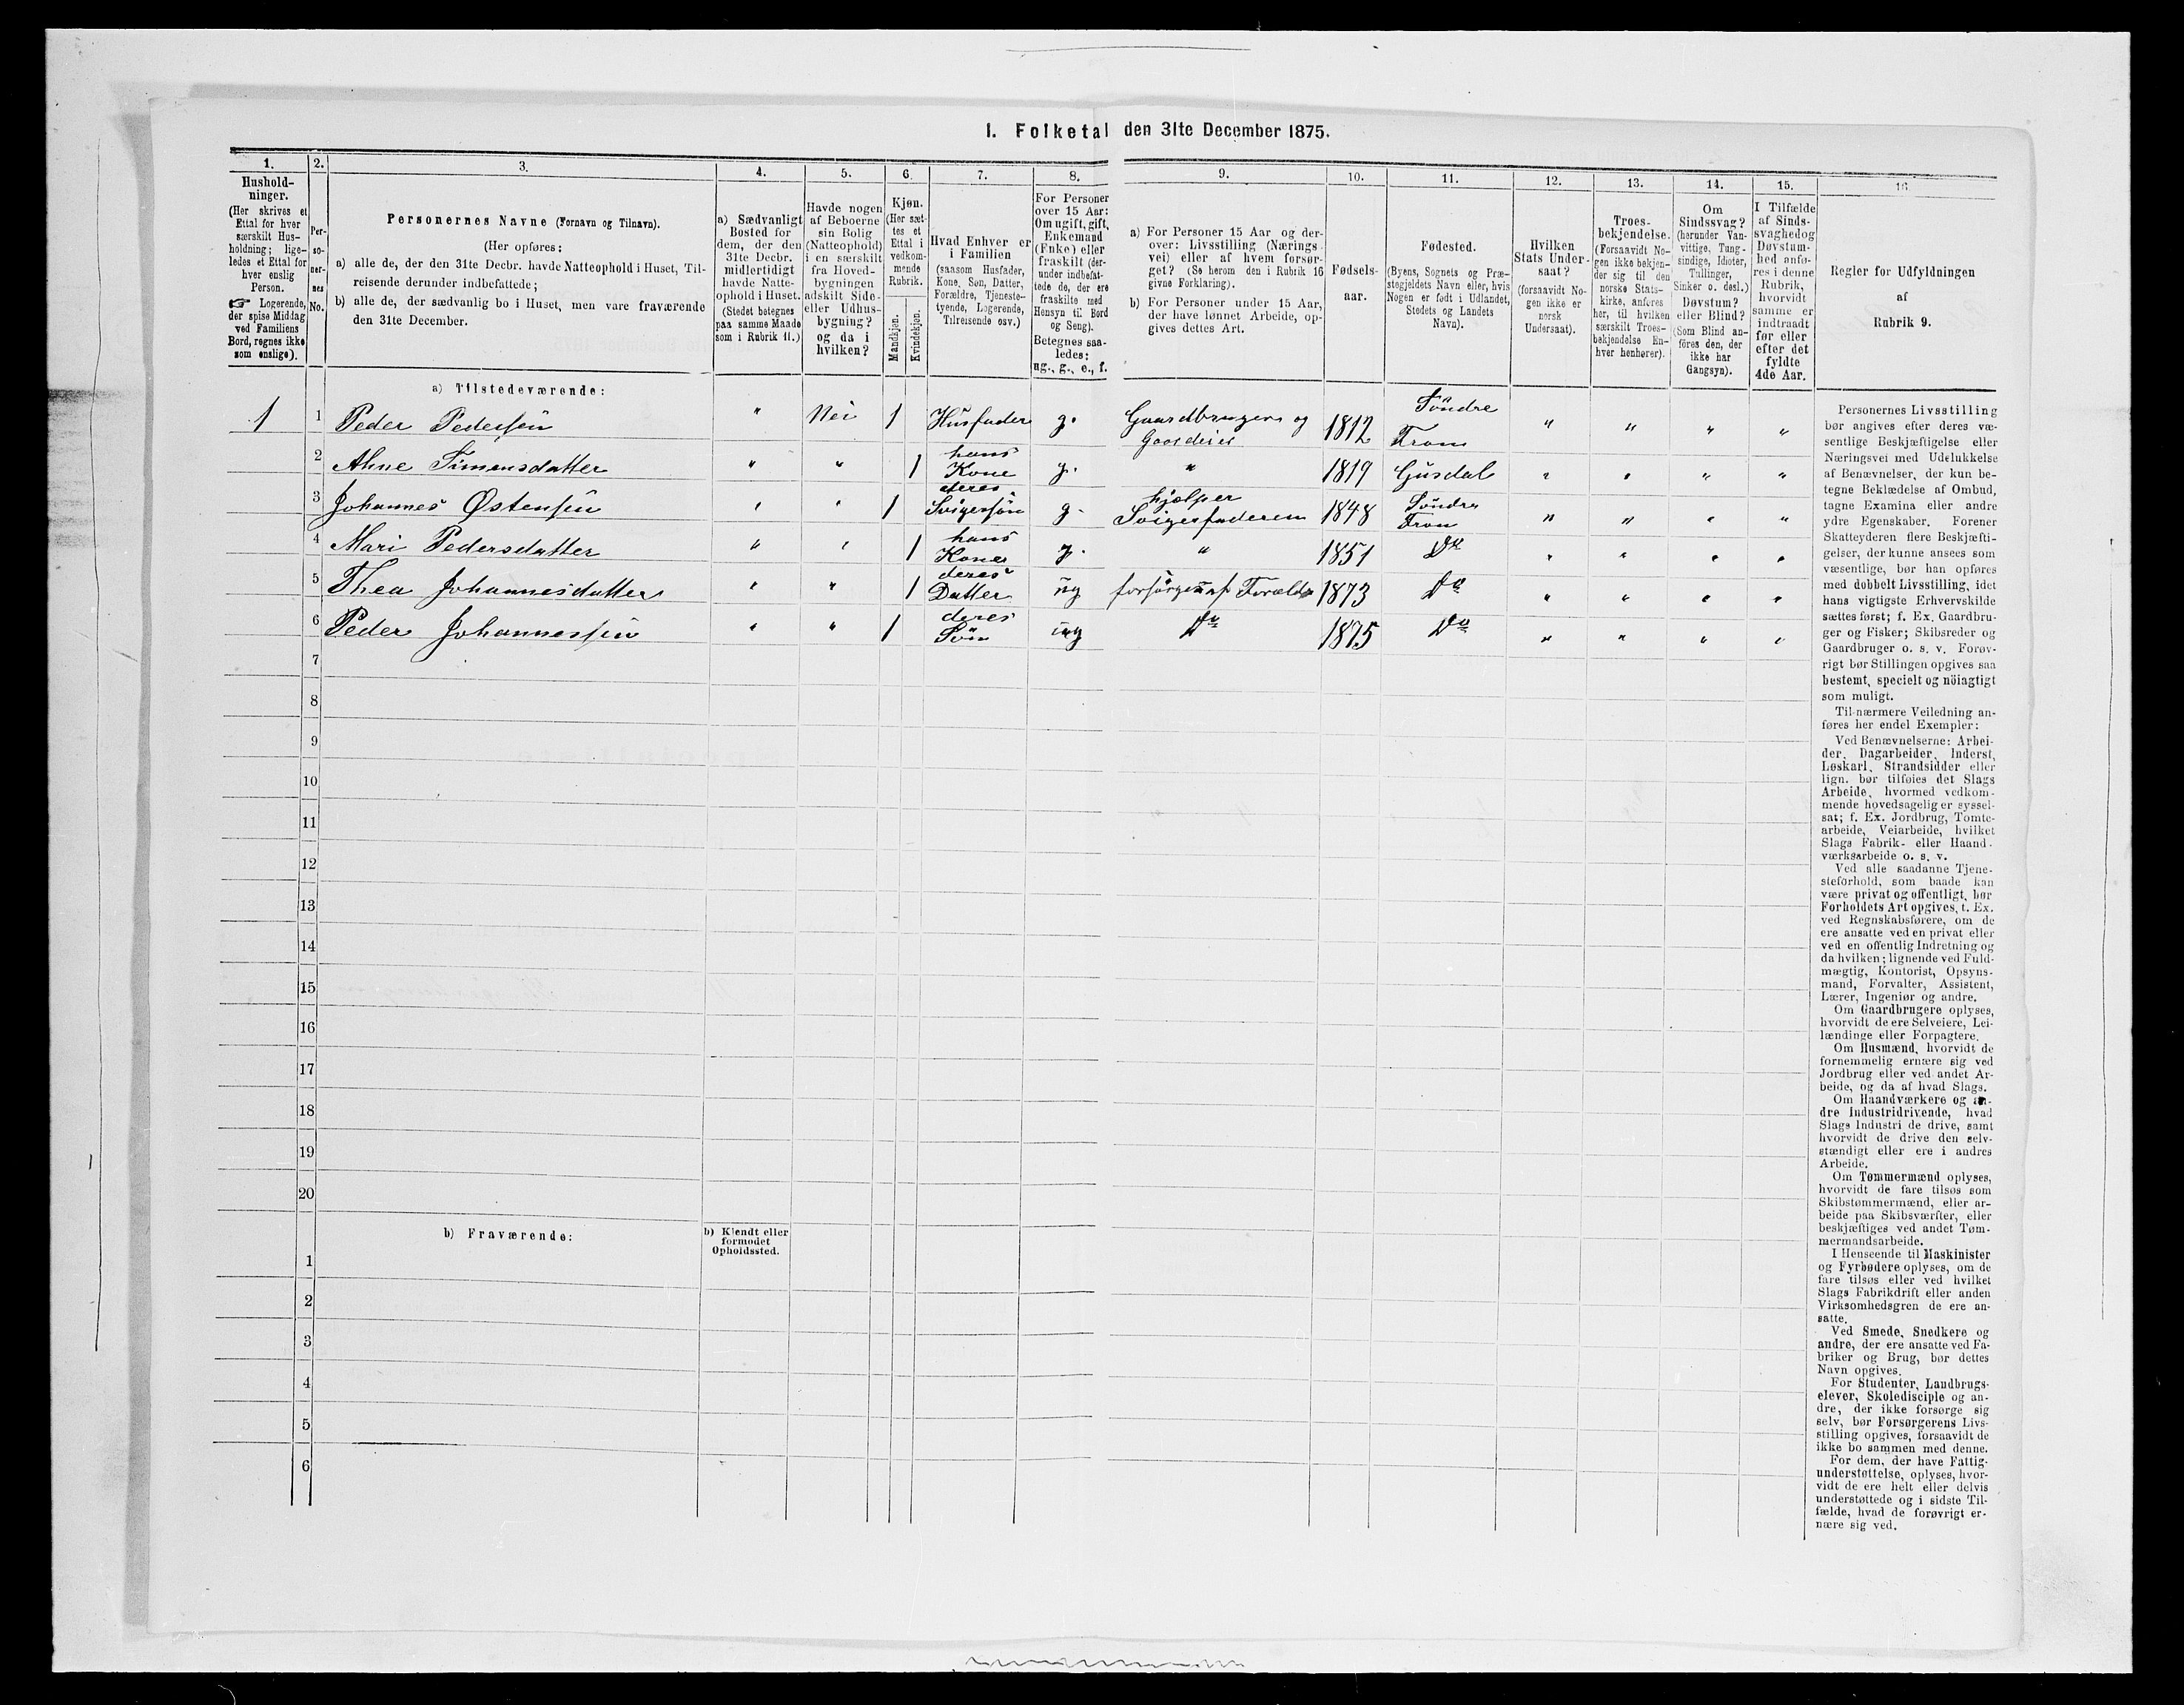 I. Folketal den 31te December 1875.
1. 2. 3. 4. 5. 6. 7. 8. 9. 10. 11. 12. 13. 14. 15. 16
Hushold-
ninger.
(Her skrives et
Ettal for hver
særskilt Hus-
holdning; lige-
ledes et Ettal for
hver enslig
Person.
☞ Logerende,
der spise Middag
ved Familiens
Bord, regnes ikke
som enslige).
Per-
so-
ner-
nes
No.
Personernes Navne (Fornavn og Tilnavn).
(Her opføres:
a) alle de, der den 31te Decbr. havde Natteophold i Huset, Til-
reisende derunder indbefattede;
b) alle de, der sædvanlig bo i Huset, men vare fraværende
den 31te December.
a) Sædvanligt
Bosted for
dem, der den
31te Decbr.
midlertidigt
havde Natte-
ophold i Huset.
(Stedet betegnes
paa samme Maade
som i Rubrik 11.)
Havde nogen
af Beboerne
sin Bolig
(Natteophold)
i en særskilt
fra Hoved-
bygningen
adskilt Side-
eller Udhus-
bygning?
og da i
hvilken?
Kjøn.
(Her sæt-
tes et
Ettal i
vedkom-
mende
Rubrik.
Mandkjøn.
Kvindekjøn.
Hvad Enhver er
i Familien
(saasom Husfader,
Kone, Søn, Datter,
Forældre, Tjeneste-
tyende, Logerende,
Tilreisende osv.)
For Personer
over 15 Aar:
Om ugift, gift,
Enkemand
(Enke) eller
fraskilt (der-
under indbefat-
tede de, der ere
fraskilte med
Hensyn til Bord
og Seng).
Betegnes saa-
ledes:
ug., g., e., f.
a) For Personer 15 Aar og der-
over: Livsstilling (Nærings-
vei) eller af hvem forsør-
get? (Se herom den i Rubrik 16
givne Forklaring).
b) For Personer under 15 Aar,
der have lønnet Arbeide, op-
gives dettes Art.
Fødsels-
aar.
Fødested.
(Byens, Sognets og Præ-
stegjeldets Navn eller, hvis
Nogen er født i Udlandet,
Stedets og Landets
Navn).
Hvilken
Stats Under-
saat?
(forsaavidt No-
gen ikke er
norsk
Undersaat).
Troes-
bekjendelse.
(Forsaavidt No-
gen ikke bekjen-
der sig til den
norske Stats-
kirke, anføres
her, til hvilken
særskilt Troes-
bekjendelse En-
hver henhører).
Om
Sindssvag?
(herunder Van-
vittige, Tung-
sindige, Idioter,
Tullinger,
Sinker o. desl.)
Døvstum?
eller Blind?
(Som Blind an-
føres den, der
ikke har
Gangsyn).
I Tilfælde
af Sinds-
svaghed og
Døvstum-
hed anfø-
res i denne
Rubrik,
hvorvidt
samme er
indtraadt
før eller
efter det
fyldte
4de Aar.
Regler for Udfyldningen
af
Rubrik 9.
a) Tilstedeværende:
1 1 Peder Pedersen " Nei 1 Husfader g. Gaardbruger og Gaardeier 1812 Söndre Fron " " " "
2 Ahne Simensdatter " " 1 hans Kone g. " 1819 Gusdal " " " "
3 Johannes Østensen " " 1 deres Svigersøn g. hjelper Svigerfaderen 1848 Söndre Fron " " " "
4 Mari Pedersdatter " " 1 hans Kone g. " 1851 Do " " " "
5 Thea Johannesdatter " " 1 deres Datter ug forsörges af Foreldr 1873 Do " " " "
6 Peder Johannessen " " 1 deres Sön ug Do 1875 Do " " " "
7
8
9
10
11
12
13
14
15
16
17
18
19
20
b) Fraværende:
b) Kjendt eller
formodet
Opholdssted.
1
2
3
4
5
6
Personernes Livsstilling
bør angives efter deres væ-
sentlige Beskjæftigelse eller
Næringsvei med Udelukkelse
af Benævnelser, der kun be-
tegne Beklædelse af Ombud,
tagne Examina eller andre
ydre Egenskaber. Forener
Skatteyderen flere Beskjæfti-
gelser, der kunne ansees som
væsentlige, bør han opføres
med dobbelt Livsstilling, idet
hans vigtigste Erhvervskilde
sættes først; f. Ex. Gaardbru-
ger og Fisker; Skibsreder og
Gaardbruger o. s. v. Forøv-
rigt bør Stillingen opgives saa
bestemt, specielt og nöiagtigt
som muligt.
Til nærmere Veiledning an-
føres her endel Exempler:
Ved Benævnelserne: Arbei-
der, Dagarbeider, Inderst,
Løskarl, Strandsidder eller
lign. bør tilføies det Slags
Arbeide, hvormed vedkom-
mende hovedsagelig er syssel-
sat; f. Ex. Jordbrug, Tomte-
arbeide, Veiarbeide, hvilket
Slags Fabrik- eller Haand-
værksarbeide o. s. v.
Ved alle saadanne Tjene-
steforhold, som baade kan
være privat og offentligt, bør
Forholdets Art opgives, t. Ex.
ved Regnskabsførere, om de
ere ansatte ved en privat eller
ved en offentlig Indretning og
da hvilken; lignende ved Fuld-
mægtig, Kontorist, Opsyns-
mand, Forvalter, Assistent,
Lærer, Ingeniør og andre.
Om Gaardbrugere oplyses,
hvorvidt de ere Selveiere, Lei-
lændinge eller Forpagtere.
Om Husmænd, hvorvidt de
fornemmelig ernære sig ved
Jordbrug eller ved andet Ar-
beide, og da af hvad Slags.
Om Haandværkere og an-
dre Industridrivende, hvad
Slags Industri de drive, samt
hvorvidt de drive den selv-
stændigt eller ere i andres
Arbeide.
Om Tømmermænd oplyses,
hvorvidt de fare tilsøs som
Skibstømmermænd, eller ar-
beide paa Skibsværfter, eller
beskjæftiges ved andet Tøm-
mermandsarbeide.
I Henseende til Maskinister
og Fyrbødere oplyses, om de
fare tilsøs eller ved hvilket
Slags Fabrikdrift eller anden
Virksomhedsgren de ere an-
satte.
Ved Smede, Snedkere og
andre, der ere ansatte ved Fa-
briker og Brug, bør dettes
Navn opgives.
For Studenter, Landbrugs-
elever, Skoledisciple og an-
dre, der ikke forsørge sig
selv, bør Forsørgerens Livs-
stilling opgives, forsaavidt de
ikke bo sammen med denne.
For dem, der have Fattig-
understøttelse, oplyses, hvor-
vidt de ere helt eller delvis
understøttede og i sidste Til-
fælde, hvad de forøvrigt er-
nære sig ved.